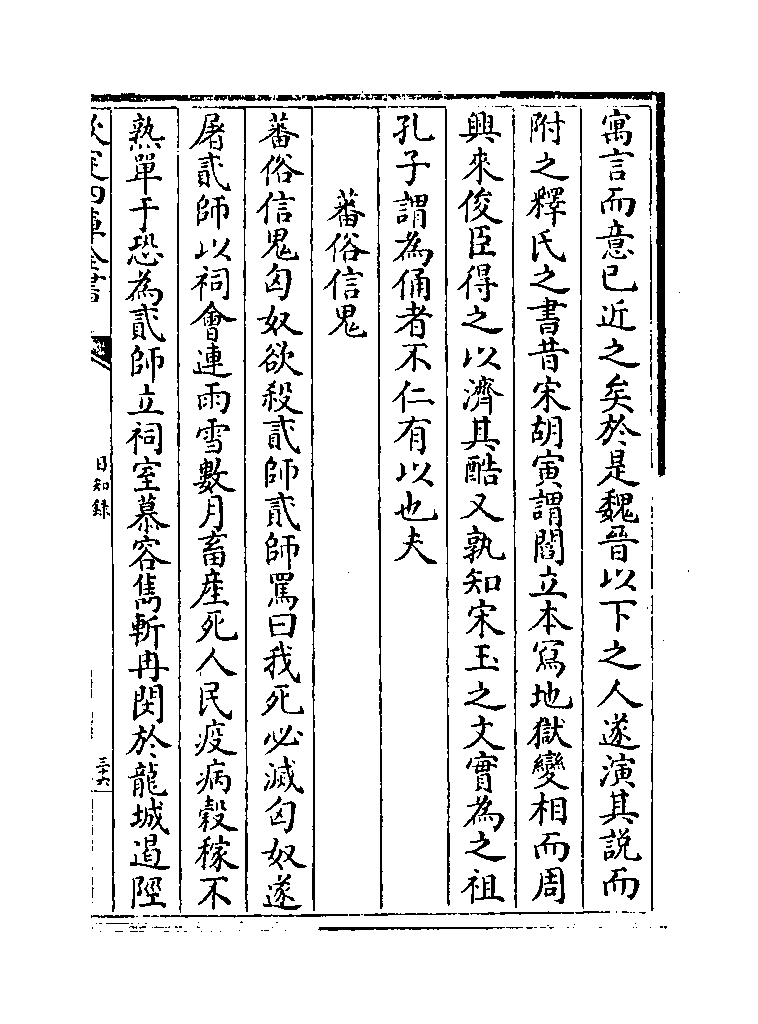 寓言而意已近之矣於是魏晉以下之人遂演其說而
附之釋氏之書昔宋胡寅謂閻立本寫地獄變相而周
興來俊臣得之以濟其酷又孰知宋玉之文實為之祖
孔子謂為俑者不仁有以也夫
蕃俗信鬼
蕃俗信鬼匈奴欲殺貳師貳師罵曰我死必滅匈奴遂
屠貳師以祠會連雨雪數月畜產死人民疫病穀稼不
熟單于恐為貳師立祠室慕容雋斬冉閔於龍城遏陘
欽定四庫全書
日知錄
三十六